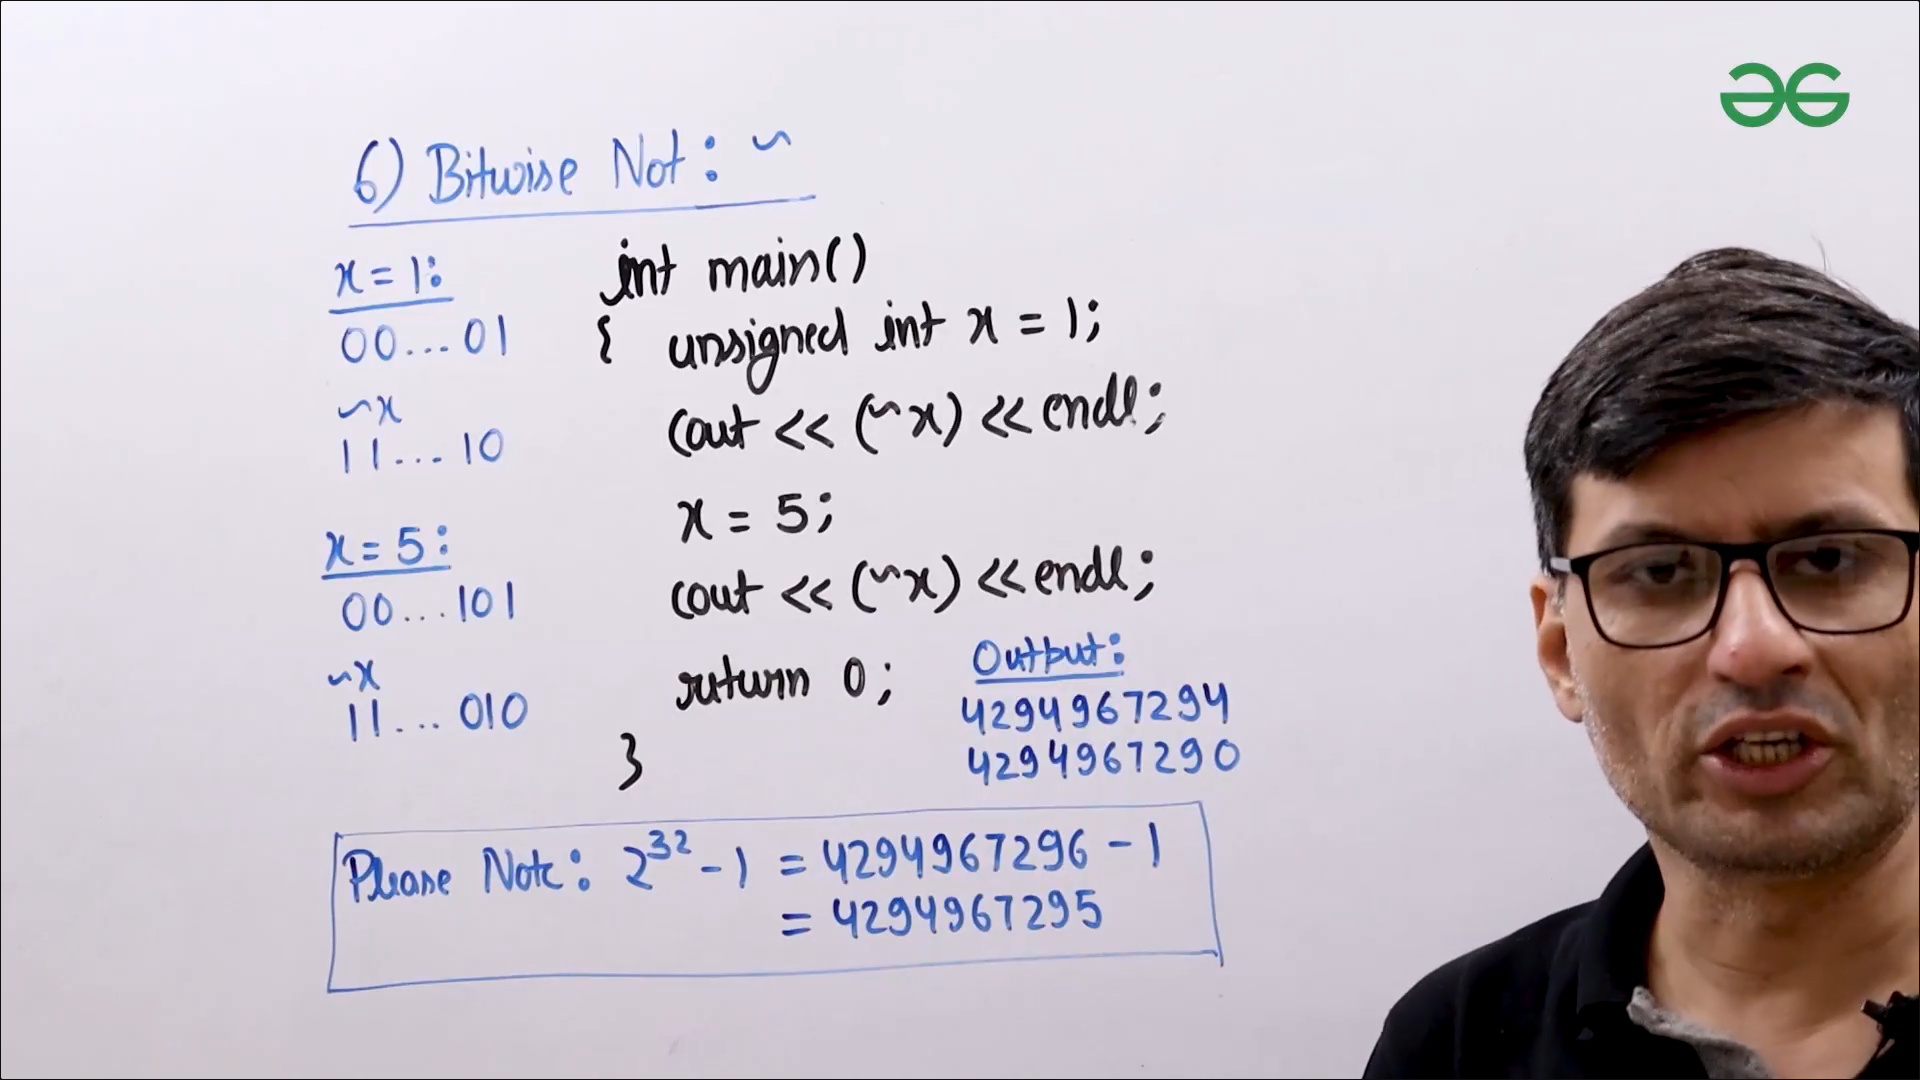 6) Bitwise Not: ~
x = 1:
00...01
~x
11...10
x = 5:
00...101
~x
11...010
int main()
{ unsigned int x = 1;
cout << (~x) << endl;
x = 5;
cout << (~x) << endl;
return 0;
}
Output:
4294967294
4294967290
Please Note: 2³² - 1 = 4294967296 - 1
= 4294967295